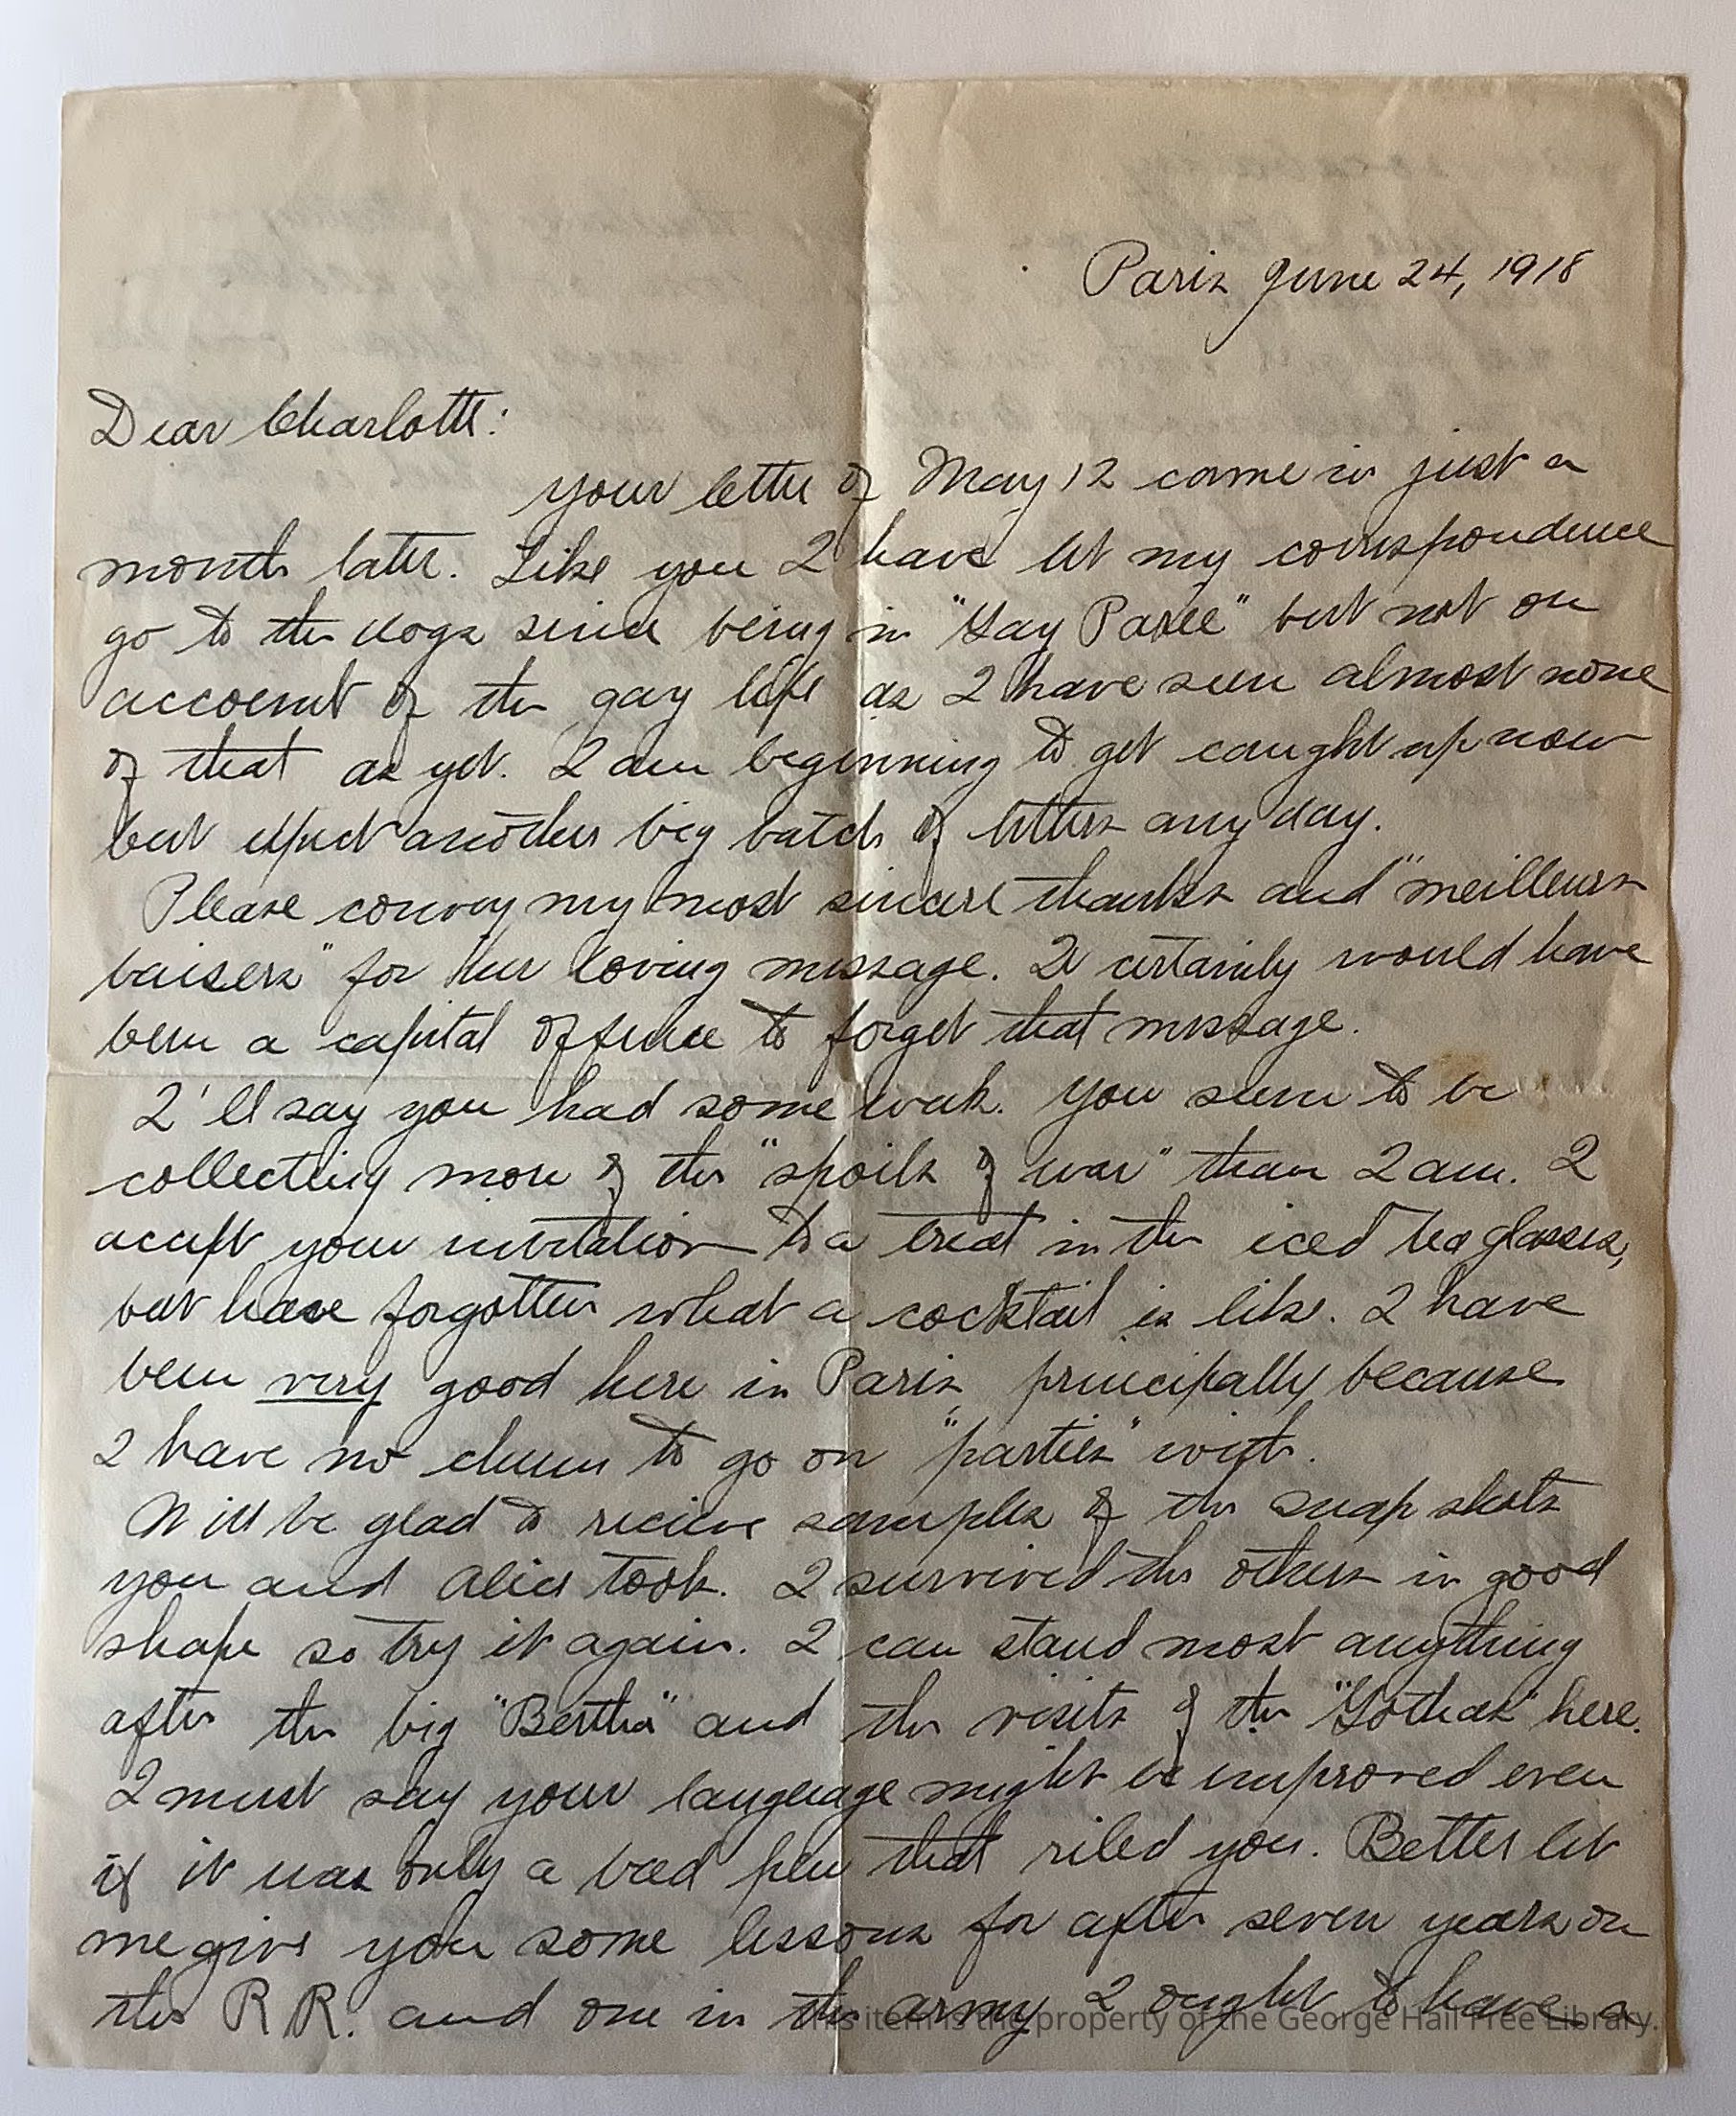 Paris June 24, 1918
Dear Charlotte:
your letter of May 12 came in just a
month later. Like you I have let my correspondence
go to the dogs since being in "Gay Paree" but not on
account of the gay life as I have seen almost none
of that as yet. I am beginning to get caught up now
but expect another big batch of letters any day.
Please convey my most sincere thanks and "meilleurs
baisers" for her loving message. It certainly would have
been a capital offence to forget that message.
I'll say you had some week. You seem to be
collecting more of the "spoils of war" than I am. I
accept your invitation to a treat in the iced tea glasses,
but have forgotten what a cocktail is like. I have
been very good here in Paris, principally because
I have no chum to go on "parties" with.
Will be glad to recieve samples of the snap shots
you and Alice took. I survived the others in good
shape so try it again. I can stand most anything
after the big "Bertha" and the visits of the "Gothas" here.
I must say your language might be improved even
if it was only a bad pen that riled you. Better let
me give you some lessons for after seven years on
the R.R. and one in the army I ought to have a
This item is the property of the George Hail Free Library.